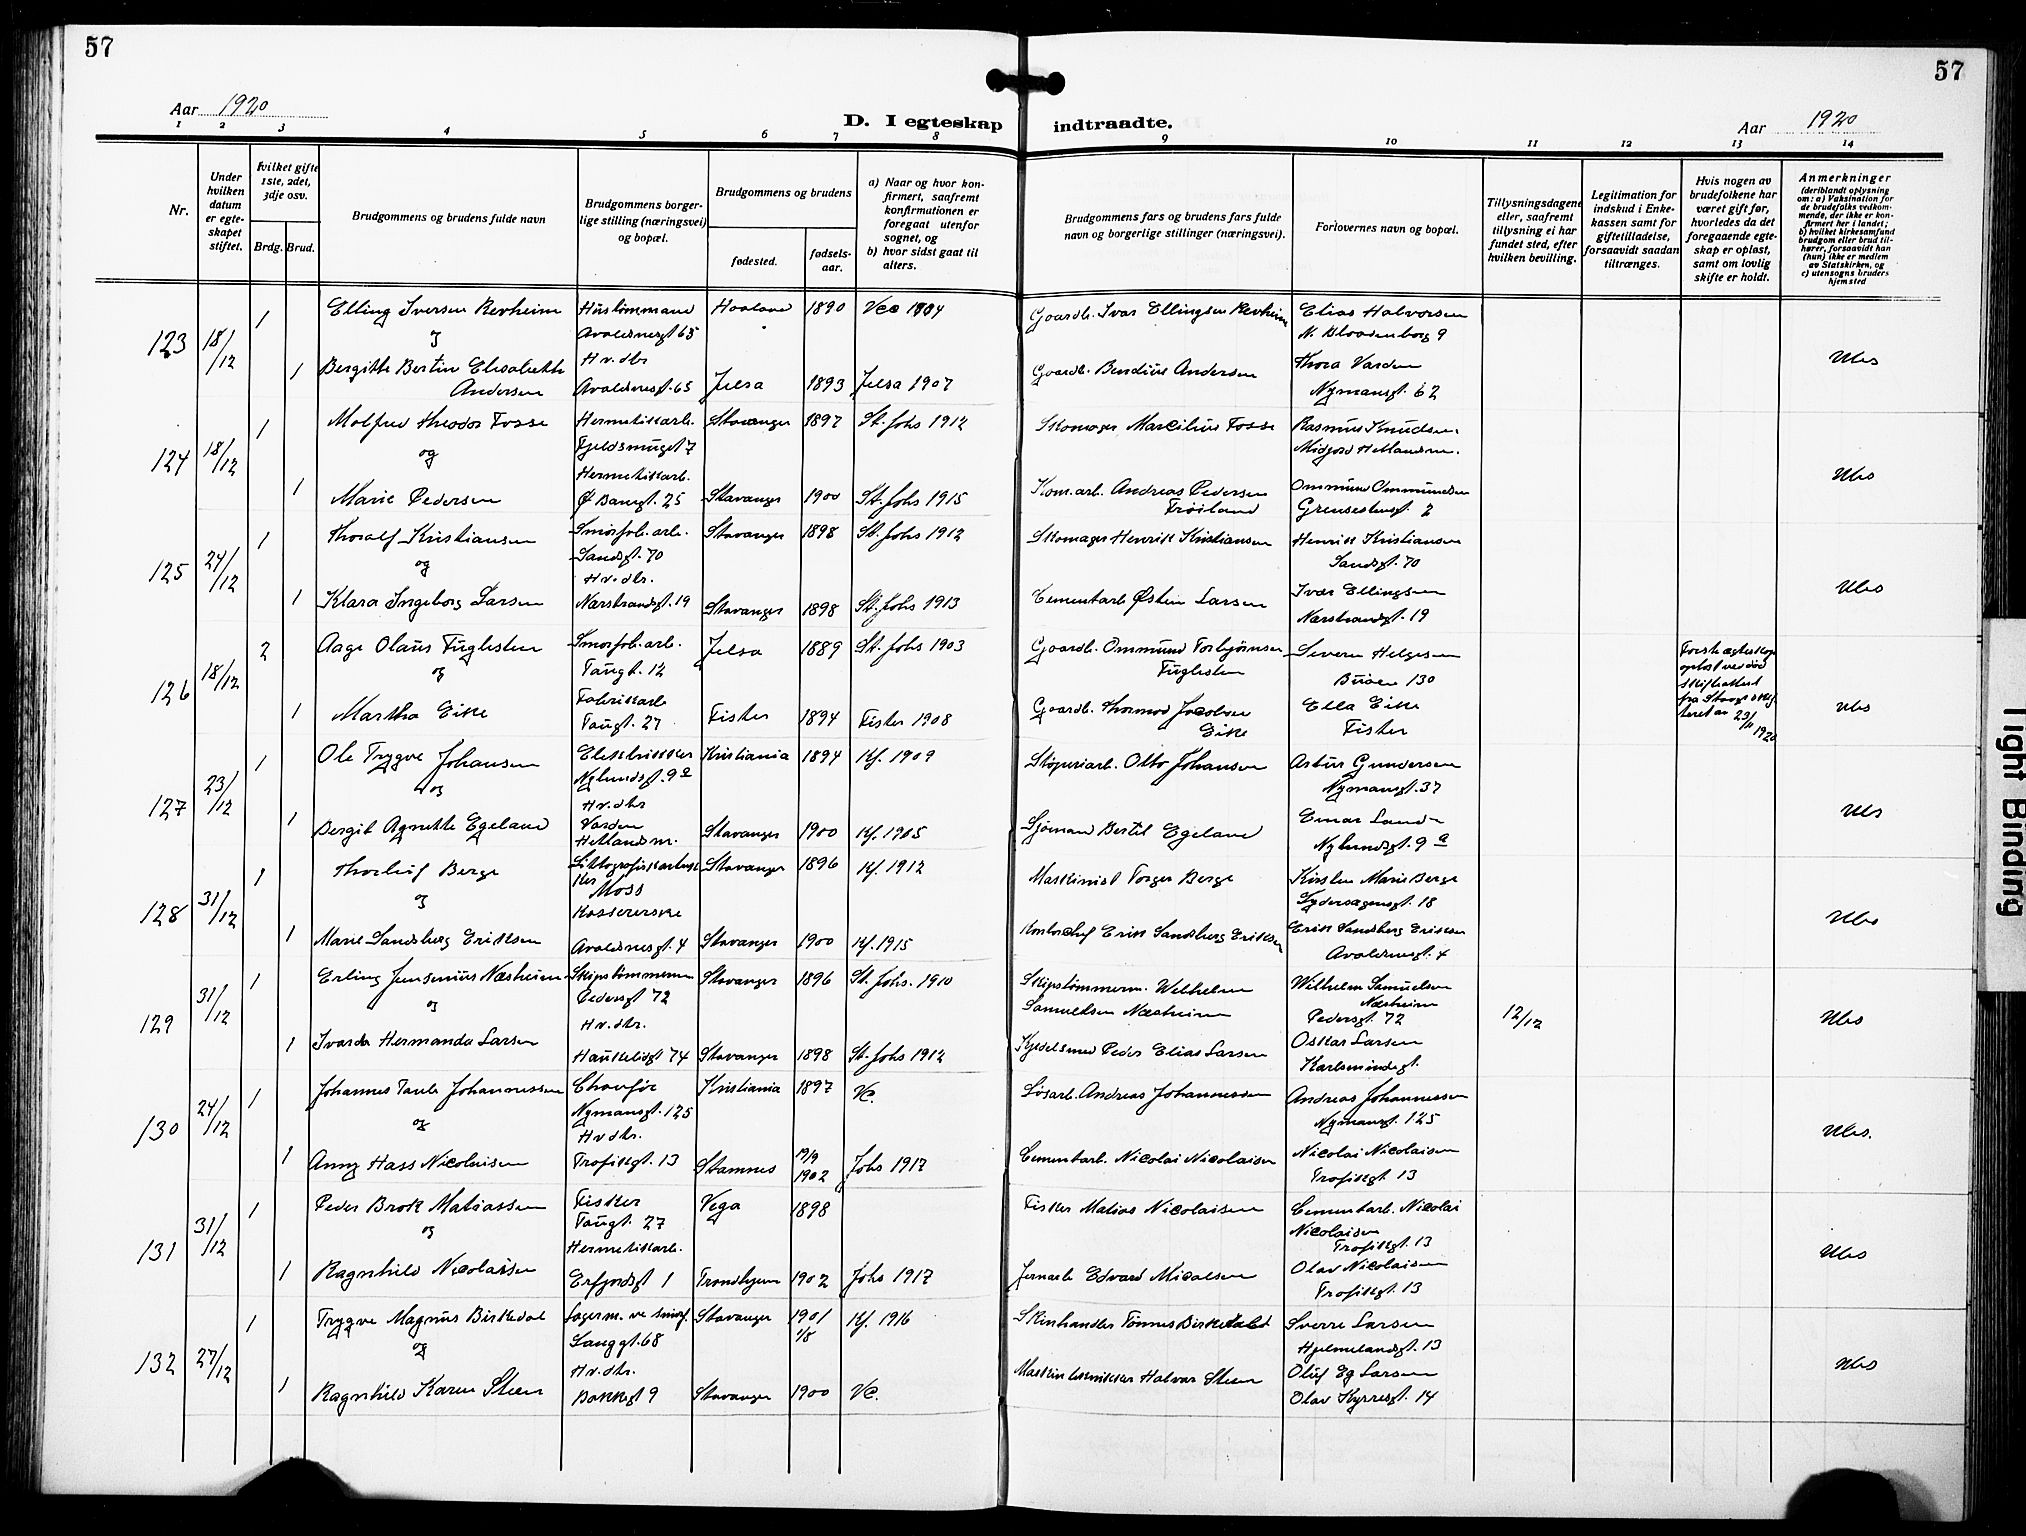 57
57
Aar 1920
D. I egteskap indtraadte.
Aar 1920
1 2 3 4 5 6 7 8 9 10 11 12 13 14
Nr.
Under hvilken datum er egte-skapet stiftet.
hvilket gifte 1ste, 2det, 3dje osv.
Brdg. Brud.
Brudgommens og brudens fulde navn
Brudgommens borger-lige stilling (næringsvei) og bopæl.
Brudgommens og brudens
fødested.
fødsels-aar.
a) Naar og hvor kon-firmert, saafremt konfirmationen er foregaat utenfor sognet, og
b) hvor sidst gaat til alters.
Brudgommens fars og brudens fars fulde navn og borgerlige stillinger (næringsvei).
Forlovernes navn og bopæl.
Tillysningsdagene eller, saafremt tillysning ei har fundet sted, efter hvilken bevilling.
Legitimation for indskud i Enke-kassen samt for giftetilladelse, forsaavidt saadan tiltrænges.
Hvis nogen av brudefolkene har været gift før, hvorledes da det foregaaende egte-skap er opløst, samt om lovlig skifte er holdt.
Anmerkninger
(deriblandt oplysning om: a) Vaksination for de brudefolks vedkom-mende, der ikke er kon-firmert her i landet;
b) hvilket kirkesamfund brudgom eller brud til-hører, forsaavidt han (hun) ikke er medlem av Statskirken, og
c) utensogns bruders hjemsted
123 18/12 1 Elling Iversen Revheim Hustømmand Avaldsnesgt 65 Haaland 1890 Vc 1904 Gaardb. Ivar Ellingsen Revheim Elias Halvorsen N. Blaasenborg 9
og
1 Bergitte Bertine Elisabeth Andersen Hv. dtr Avaldsnesgt. 65 Jelsa 1893 Jelsa 1907 Gaardb. Bendius Andersen Thora Varden Nymansgt 62 Ubs
124 18/12 1 Molfred Theodor Fosse Hermetikarb. Fjeldsmugt 7 Stavanger 1897 St. Johs 1912 Skomager Marcilius Fosse Rasmus Knudsen Midjord Hetlandsm.
og
1 Marie Pedersen Hermetikarb. Ø Banegt. 25 Stavanger 1900 St. Johs 1915 Kom.arb. Andreas Pedersen Frøiland Ommund Ommundsen Grensestensgt. 2 Ubs
125 24/12 1 Thoralf Kristiansen Smørfab. arb. Sandsgt. 70 Stavanger 1898 St. Johs 1912 Skomager Henrik Kristiansen Henrik Kristiansen Sandsgt. 70
og
1 Klara Ingeborg Larsen Hv. dtr. Nærstrandsgt. 19 Stavanger 1898 St. Johs 1913 Cementarb Østein Larsen Ivar Ellingsen Nærstrandsgt. 19 Ubs
126 18/12 2 Aage Olaus Fuglesten Smørfab. arb. Taugt. 12 Jelsa 1889 St. Johs 1903 Gaardb. Ommund Torbjønsen Fuglesten Severin Helgesen Buøen 130
og
1 Martha Eike Fabrikkarb Taugt. 27 Fister 1894 Fister 1908 Gaardb. Thormod Jacobsen Eike Ella Eike Fister
Første ægteskap opløst ved død skifteattest fra Stavgr. skifteret av 23/11 1920 Ubs
127 23/12 1 Ole Trygve Johansen Elektrikker Nylundsgt. 9a Kristiania 1894 Kf. 1909 Støperiarb. Otto Johansen Artur Gundersen Nymansgt. 37
og
1 Bergit Agnette Egeland Hv. dtr Varden Hetlandsm. Stavanger 1900 Kf. 1915 Sjømand Bertil Egeland Einar Lande Nylundsgt. 9a Ubs
128 31/12 1 Thorleif Berge Moss Stavanger 1896 Kf. 1912 Maskinist Torger Berge Kirsten Marie Berge 18
og
1 Marie Sandsberg Eriksen Kassererske Avaldsnesgt. 4 Stavanger 1900 Kf. 1915 Kontorchef Erik Sandsberg Eriksen Erik Sandsberg Eriksen Avaldsnesgt. 4 Ubs
129 31/12 1 Erling Jensenius Næsheim Skipstømmerm. Pedersgt 72 Stavanger 1896 St. Johs. 1910 Skipstømmerm. Wilhelm Samuelsen Næsheim Wilhelm Samuelsen Næsheim Pedersgt. 72 12/12
og
1 Ivarda Hermanda Larsen Hv. dtr. Haukeligt 74 Stavanger 1898 St. Johs 1912 Kjedelsmed Peder Elias Larsen Oskar Larsen Karlsmindegt. Ubs
130 24/12 1 Johannes Tank Johannessen Chauffør Nymansgt. 125 Kristiania 1897 Vc. Løsarb. Andreas Johannessen Andreas Johannessen Nymansgt. 125
og
1 Anny Hass Nicolaisen Hv dtr. Trofikgt. 13 Stamnes 19/9 1902 Johs 1917 Cementarb. Nicolai Nicolaisen Nicolai Nicolaisen Trofikgt. 13 Ubs.
131 31/12 1 Peder Brok Matiassen Fisker Taugt. 27 Vega 1898 Fisker Matias Nicolaisen Cementarb. Nicolai Nicolaisen Trofikgt. 13
og
1 Ragnhild Nicolaisen Hermetikarb. Erfjordsgt 1 Trondhjem 1902 Johs 1917 Jernarb Edvard Micalsen Olav Nicolaisen Trofikgt. 13 Ubs
132 27/12 1 Trygve Magnus Birkedal Lagerm. ve smørf. Langgt. 68 Stavanger 1901 Kf. 1916 Skinhandler Tønnes Birkedal Sverre Larsen Hjelmelandsgt. 13
og
1 Ragnhild Karen Steen Hv. dtr. Bakkegt 9 Stavanger 1900 Vc. Halvar Steen Oluf Eg Larsen Olav Kyrresgt. 14 Ubs
Tight Binding